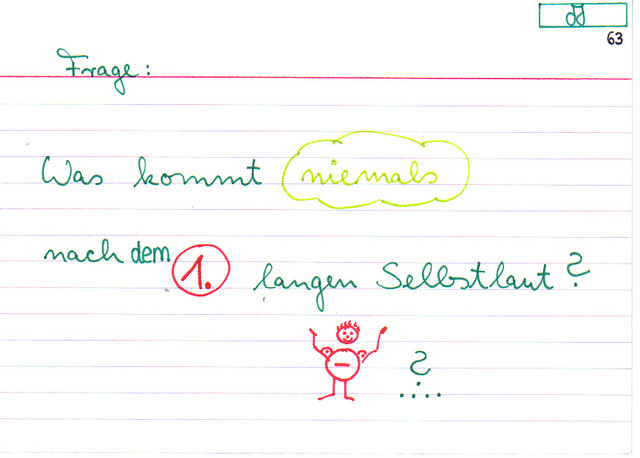 63
Frage:
Was kommt niemals
nach dem 1. langen Selbstlaut?
?
....